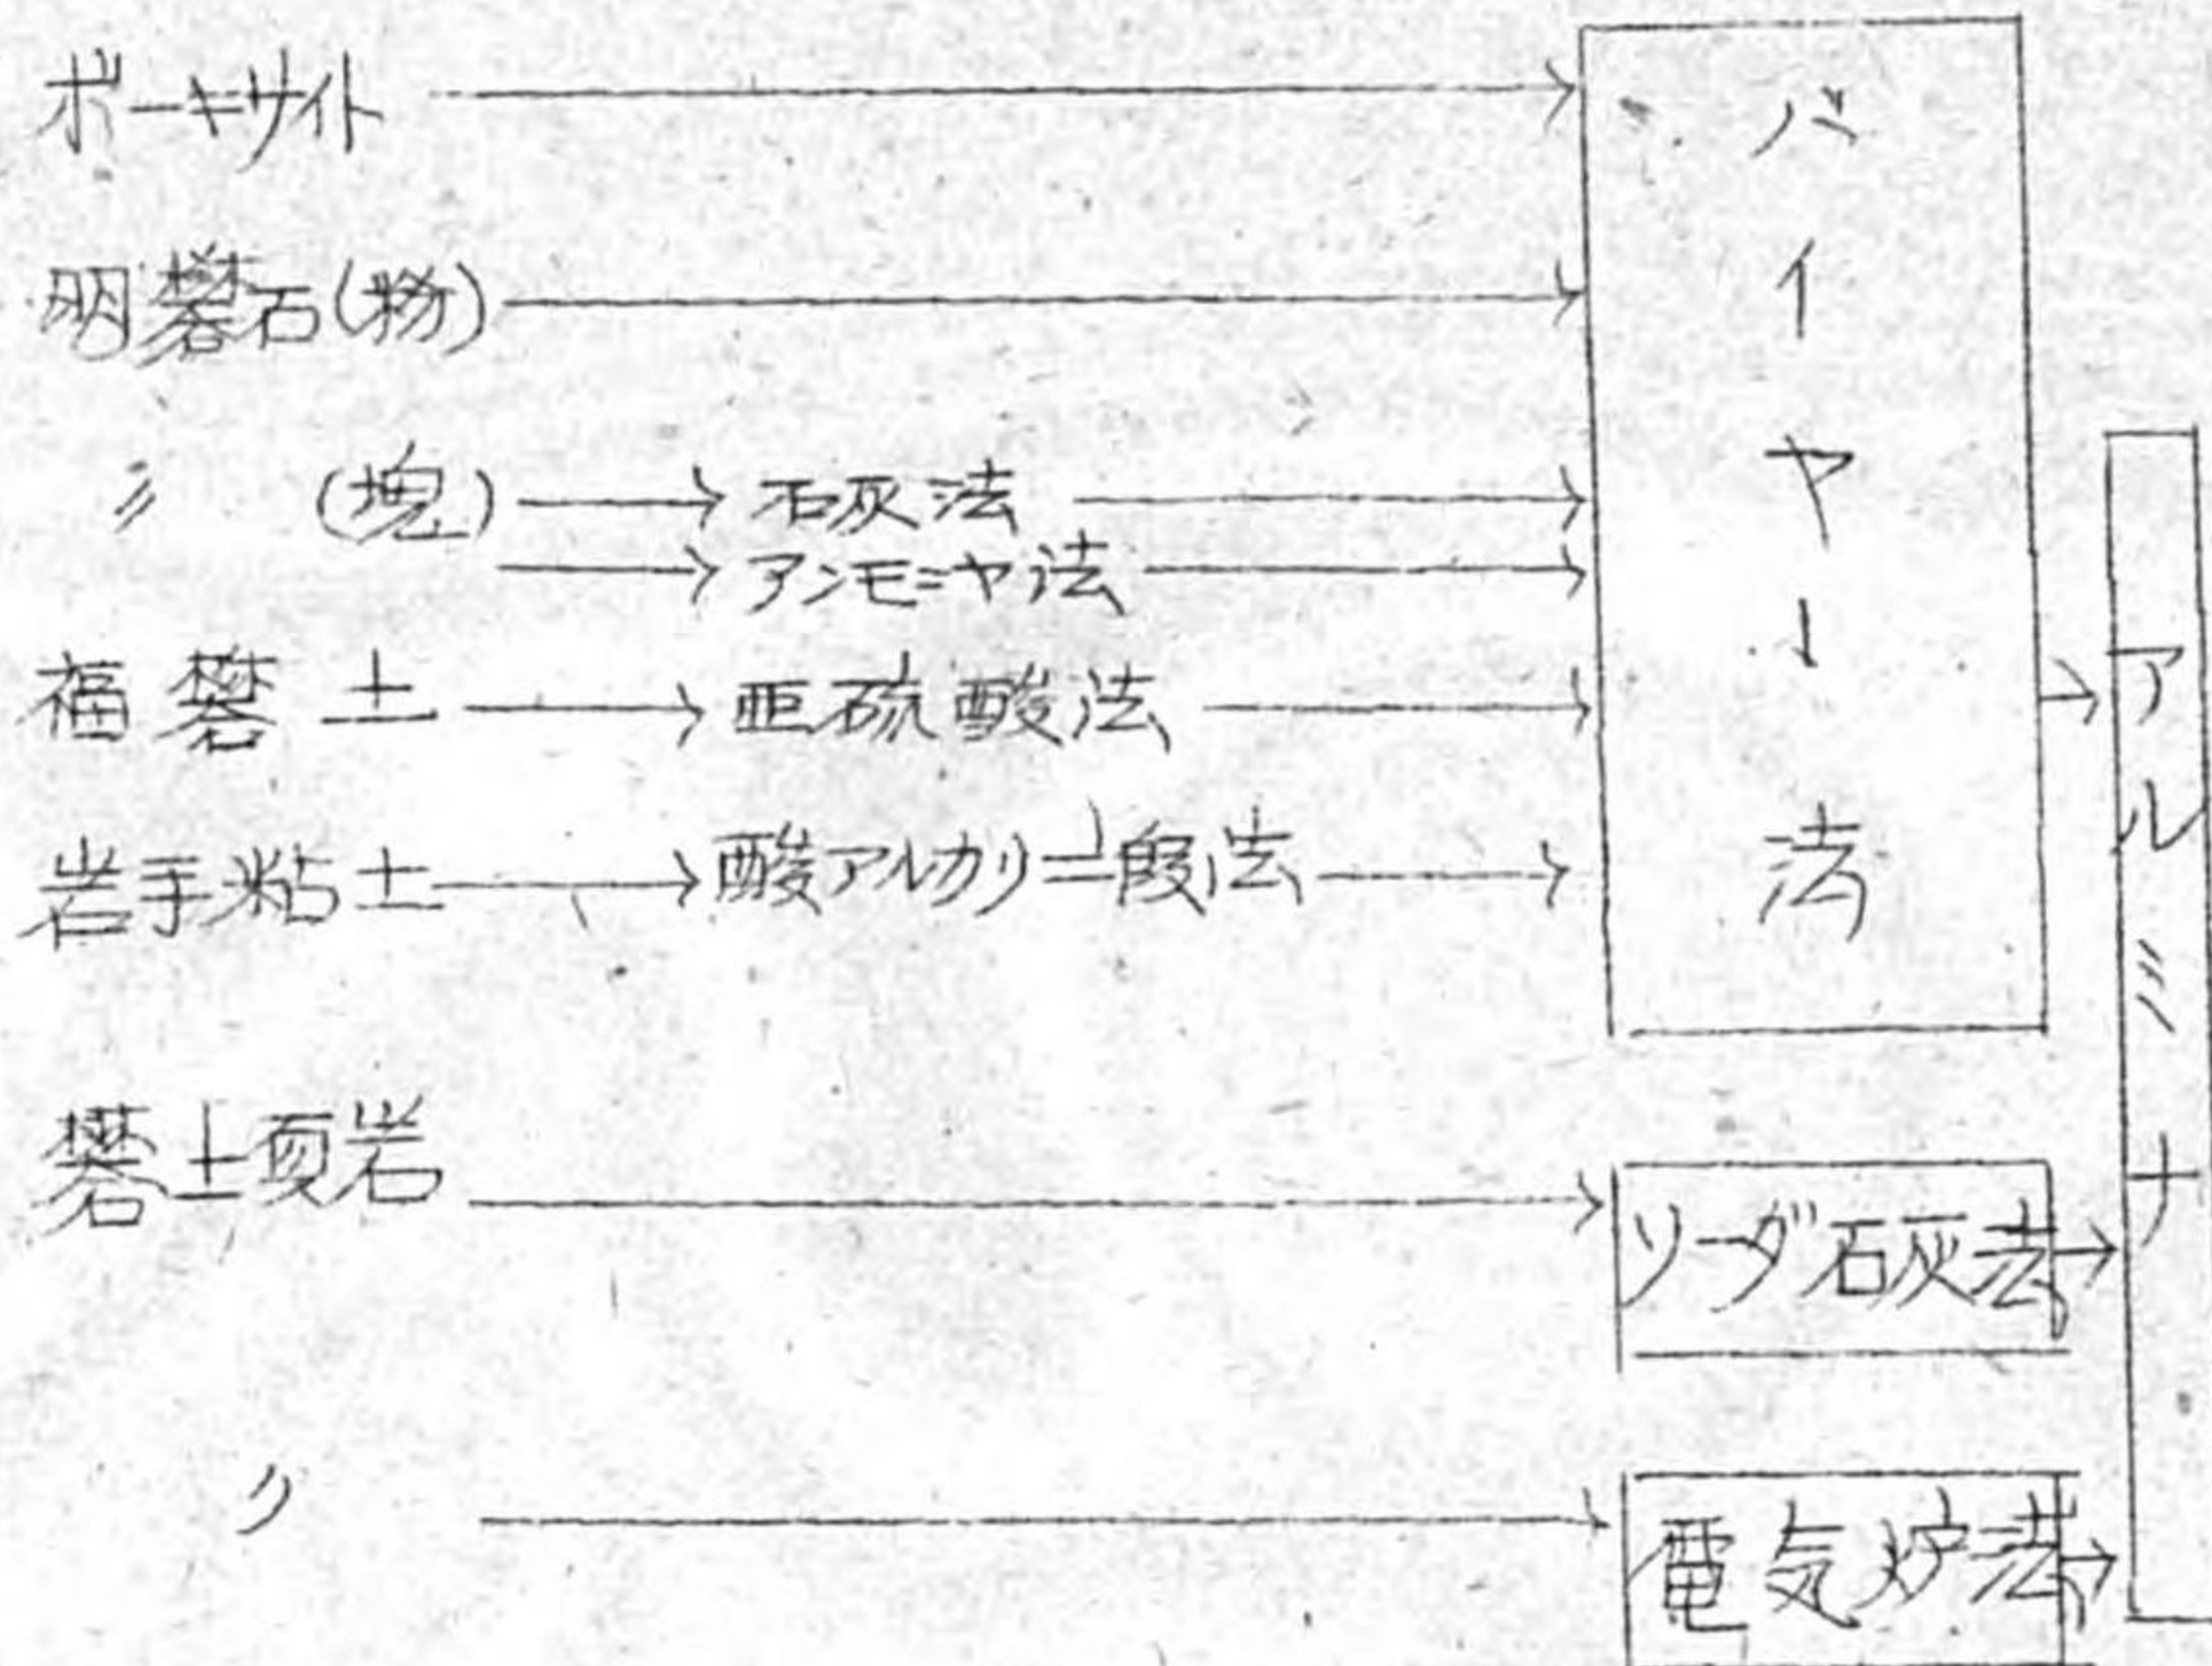 ボーキサイト
明礬石(粉)
〃 (塊) 石灰法
アンモニヤ法
福礬土 亜硫酸法
岩手粘土 酸アルカリ二段法
バイヤー法
礬土頁岩
ソーダ石灰法
〃
電気炉法
アルミナ